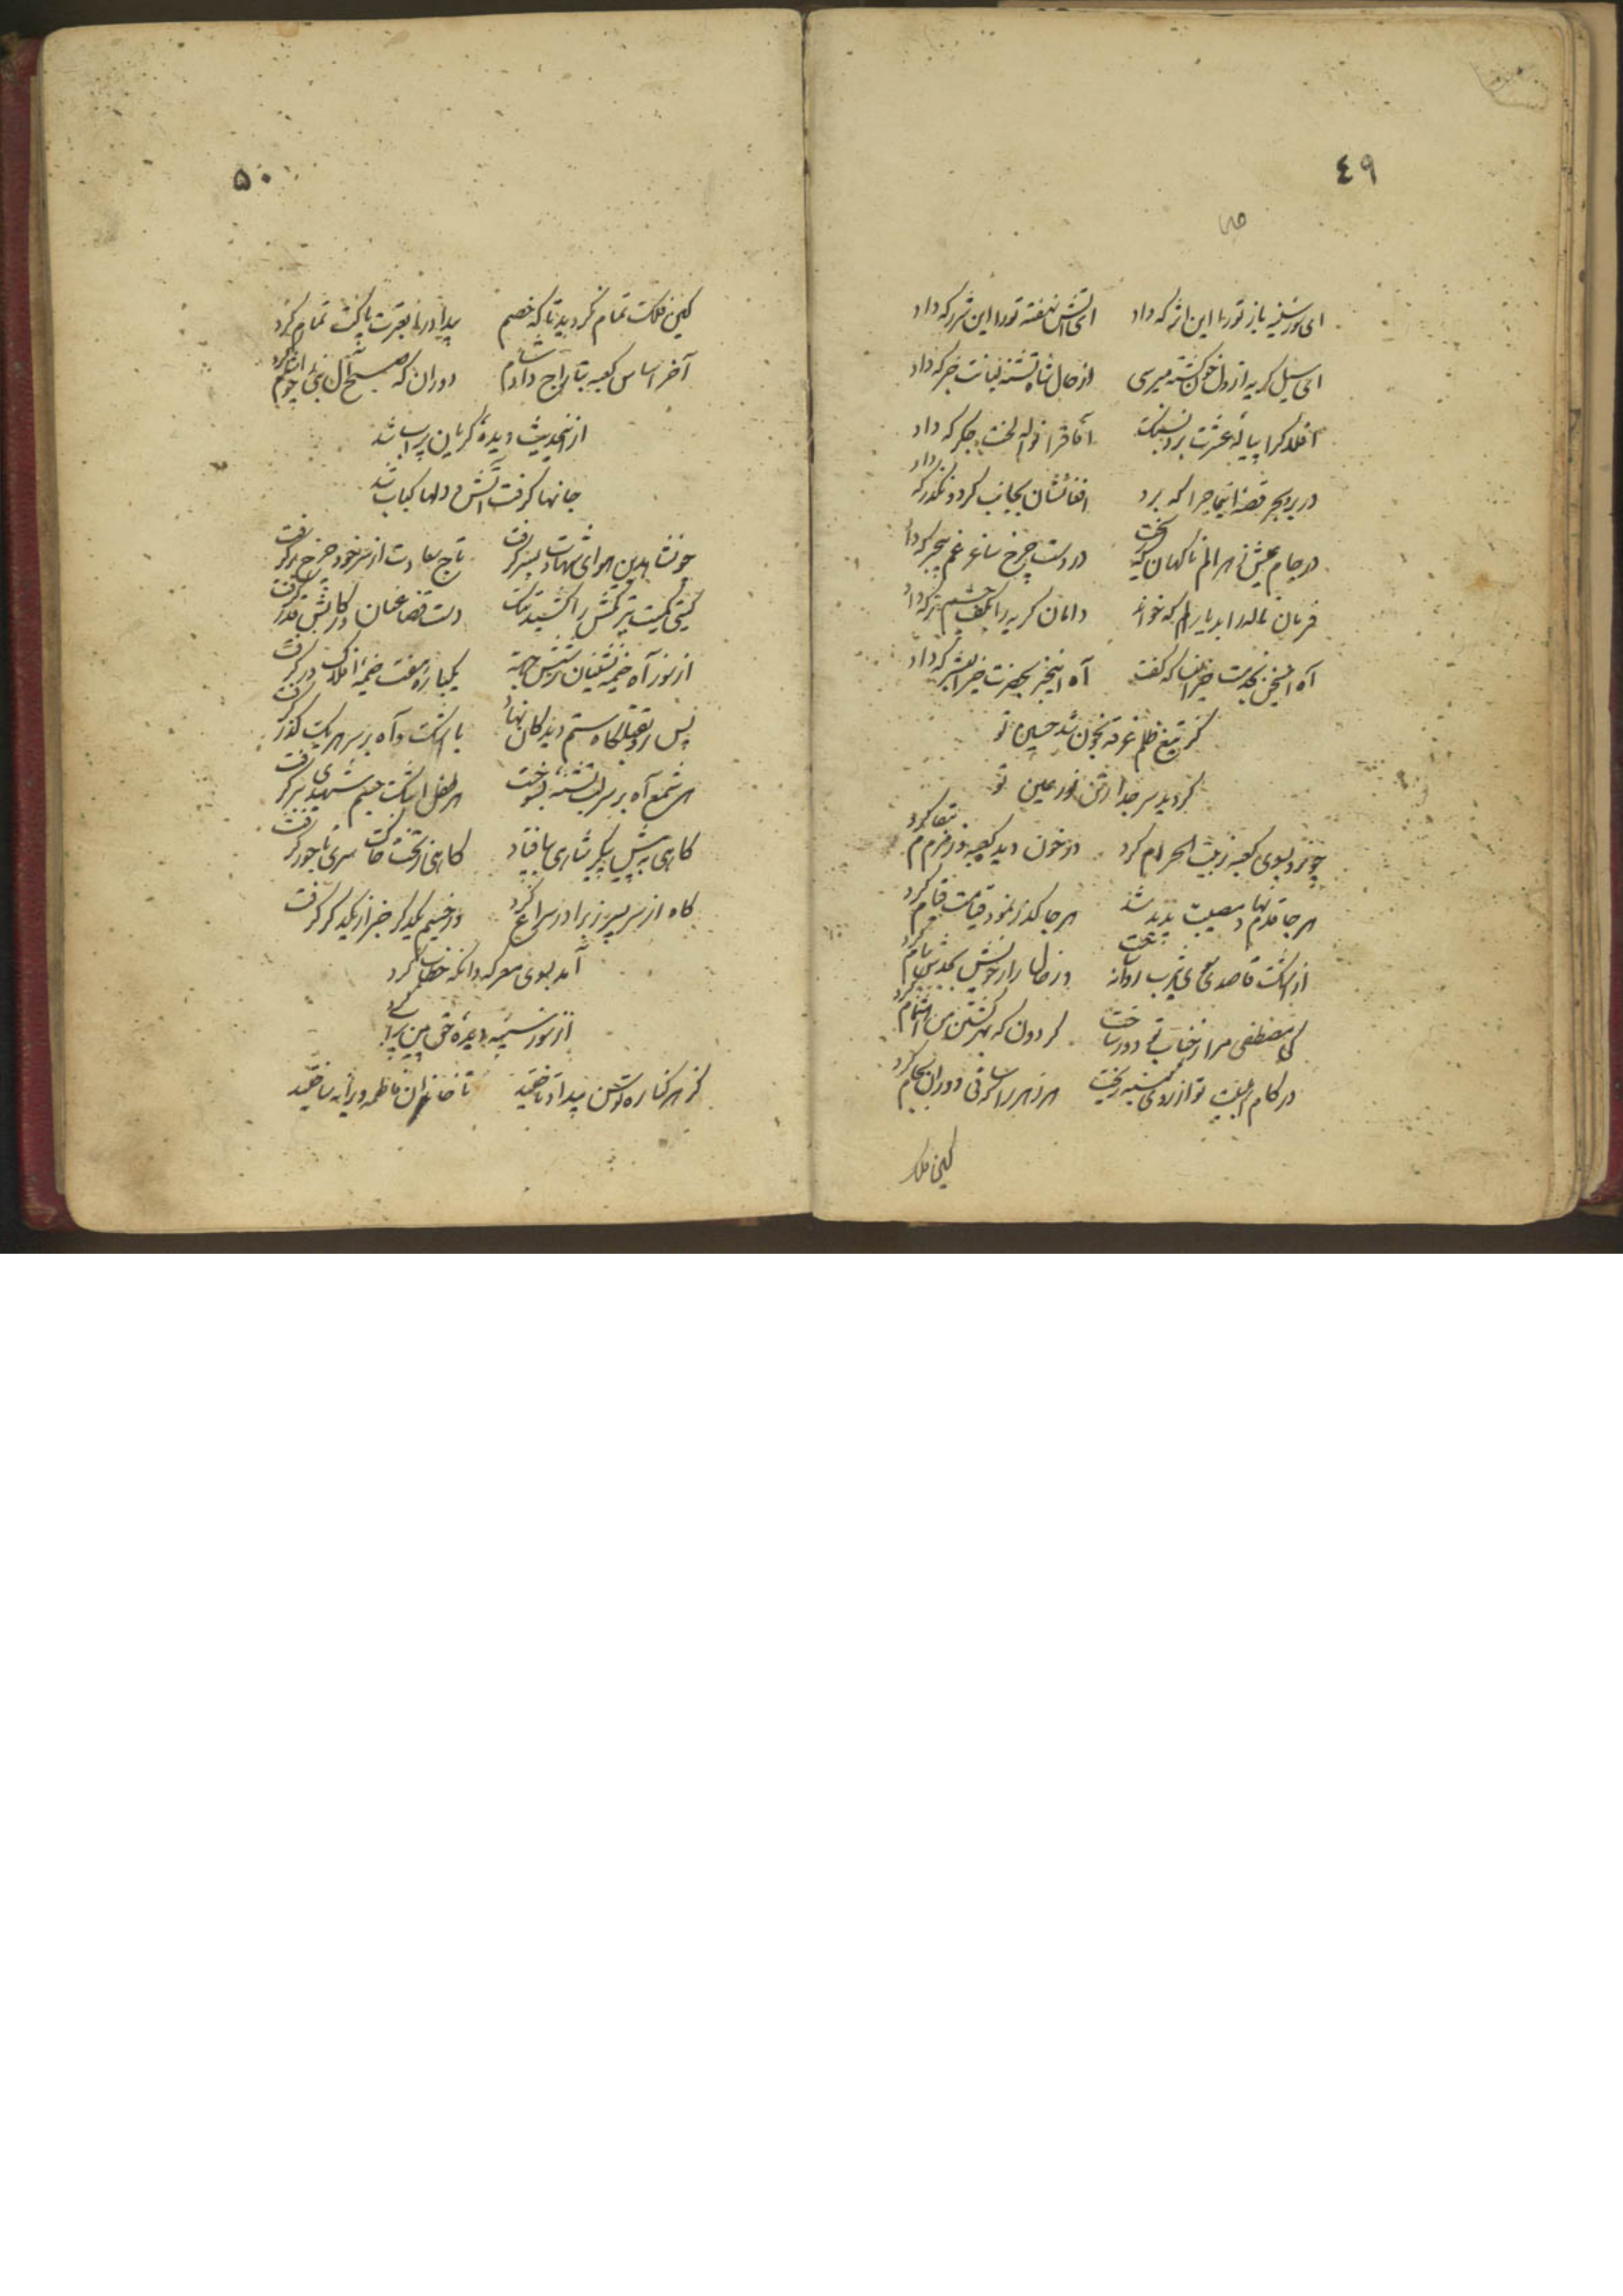 ٤٩
ای سوز سینه باز تو را این اثر که داد ای آتش نهفته تو را این شرر که داد
ای سیل گریه از دل خون گشته میرسی از حال شاه تشنه لبانت خبر که داد
افلاک را پیاله عشرت که برد آفاق را نواله لخت جگر که داد
در بر و بحر قصه این ماجرا که برد که داد
در جام عیش زهر الم ناگهان که ریخت در دست چرخ ساغر غم بیخبر که داد
فرمان ناله را بدیار الم که خواند دامان گریه را بکف چشم تر که داد
آه این سخن بخدمت خیر النسا که گفت آه این خبر بحضرت خیر البشر که داد
کز تیغ ظلم غرقه بخون شد حسین تو
گردید سر جدا ز تن نور عین تو
چون رو بسوی کعبه ز بیت الحرام کرد از خون دیده کعبه و زمزم مقام کرد
هر جا قدم نهاد مصیبت پدید شد هر جا گذر نمود قیامت قیام کرد
از اشک قاصدی سوی یثرب روانه ساخت وز حال زار خویش بجدش پیام کرد
کی مصطفی مرا ز جناب تو دور ساخت گردون که بهر کشتن من اهتمام کرد
در کام اهلبیت تو از روی کینه ریخت هر زهر را که ساقی دوران بجام کرد
کین فلک
۵۰
کین فلک تمام نگردید تا که خصم بیداد را بعترت پاکت تمام کرد
آخر اساس کعبه بتاراج داد شام دوران که صبح آل نبی را چو شام کرد
از این حدیث دیده گریان پر آب شد
جانها گرفت آتش و دلها کباب شد
چون شاه دین هوای شهادت بسر گرفت تاج سعادت از سر خود چرخ بر گرفت
گیتی کمیت سرکش را کشید تنگ دست قضا عنان و رکابش قدر گرفت
از سوز آه خیمه نشینان ز شش جهة یکباره هفت خیمه افلاک در گرفت
پس رو بقتلگاه ستم دیدگان نهاد با اشک و آه بر سر هر یک گذر گرفت
هر شمع آه بر سر لب تشنه ای بسوخت هر طفل اشک جسم شهیدی ببر گرفت
گاهی به پیش پیکر بی سر ز پا فتاد گاهی ز تخت خاک سری تاجور گرفت
گاه از سر پسر ز برادر سراغ کرد وز جسم یکدگر خبر از یکدگر گرفت
آمد بسوی معرکه وانگه خطاب کرد
از سوز سینه دیده حق بین پر آب کرد
کز هر کناره توسن بیداد تاختید تا خاندان فاطمه ویرانه ساختید